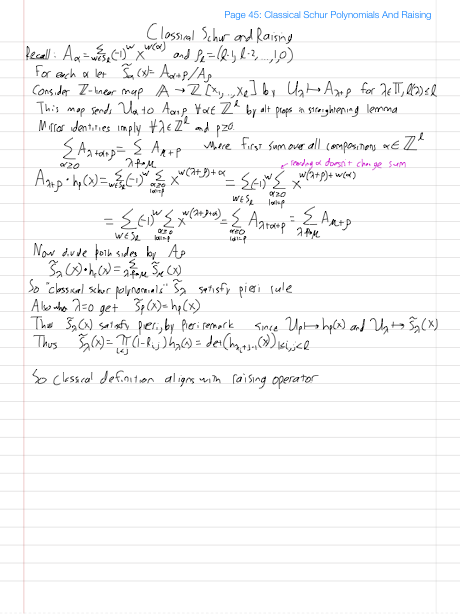 Page 45: Classical Schur Polynomials And Raising
Classical Schur and Raising
Recall: A_α = Σ_{w∈S_ℓ} (-1)^w x^{w(α)} and ρ_ℓ = (ℓ-1, ℓ-2, ..., 1, 0)
For each α let S̃_α(x) = A_{α+ρ}/A_ρ
Consider ℤ-linear map A → ℤ[x_1, ..., x_ℓ] by U_λ ↦ A_{λ+ρ} for λ∈Π, ℓ(λ)≤ℓ
This map sends U_α to A_{α+ρ} ∀α∈ℤ^ℓ by alt props in straightening lemma
Mirror identities imply ∀λ∈ℤ^ℓ and p≥0
Σ_{α≥0} A_{λ+α+ρ} = Σ_{λ→μ} A_{μ+ρ} where first sum over all compositions α∈ℤ^ℓ
reordering α doesn't change sum
A_{λ+ρ} · h_p(x) = Σ_{w∈S_ℓ} (-1)^w Σ_{α≥0 |α|=p} x^{w(λ+ρ)+α} = Σ_{w∈S_ℓ} (-1)^w Σ_{α≥0 |α|=p} x^{w(λ+ρ)+w(α)}
= Σ_{w∈S_ℓ} (-1)^w Σ_{α≥0 |α|=p} x^{w(λ+ρ+α)} = Σ_{α≥0 |α|=p} A_{λ+α+ρ} = Σ A_{μ+ρ}
Now divide both sides by A_ρ
S̃_λ(x) · h_p(x) = Σ_{λ→μ} S̃_μ(x)
So "classical schur polynomials" S̃_λ satisfy pieri rule
Also when λ=0 get S̃_p(x) = h_p(x)
Thus S̃_λ(x) satisfy pieri, by Pieri remark since U_p ↦ h_p(x) and U_λ ↦ S̃_λ(x)
Thus S̃_λ(x) = Π_{i<j} (1-R_{ij}) h_λ(x) = det(h_{λ_i+j-i}(x))_{1≤i,j≤ℓ}
So classical definition aligns with raising operator